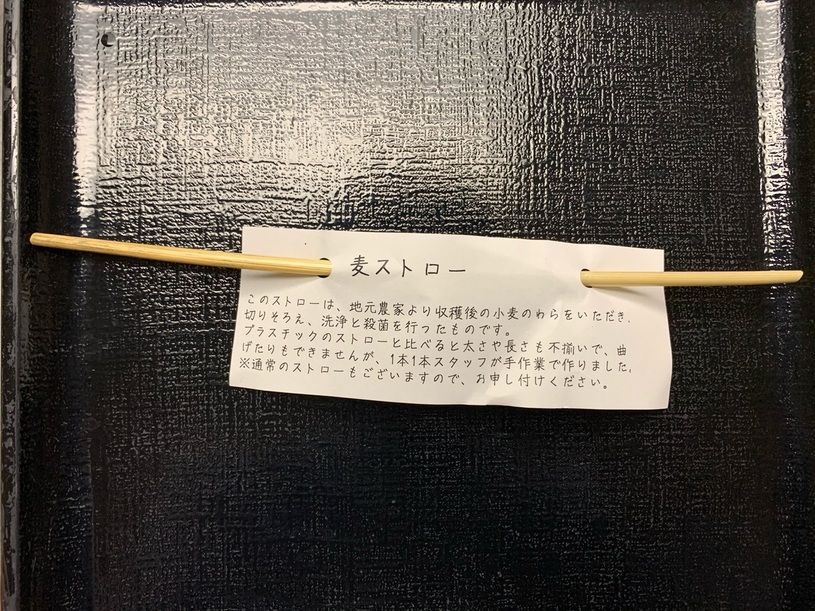 麦ストロー
このストローは、地元農家より収穫後の小麦のわらをいただき、
切りそろえ、洗浄と殺菌を行ったものです。
プラスチックのストローと比べると太さや長さも不揃いで、曲
げたりもできませんが、1本1本スタッフが手作業で作りました。
※通常のストローもございますので、お申し付けください。